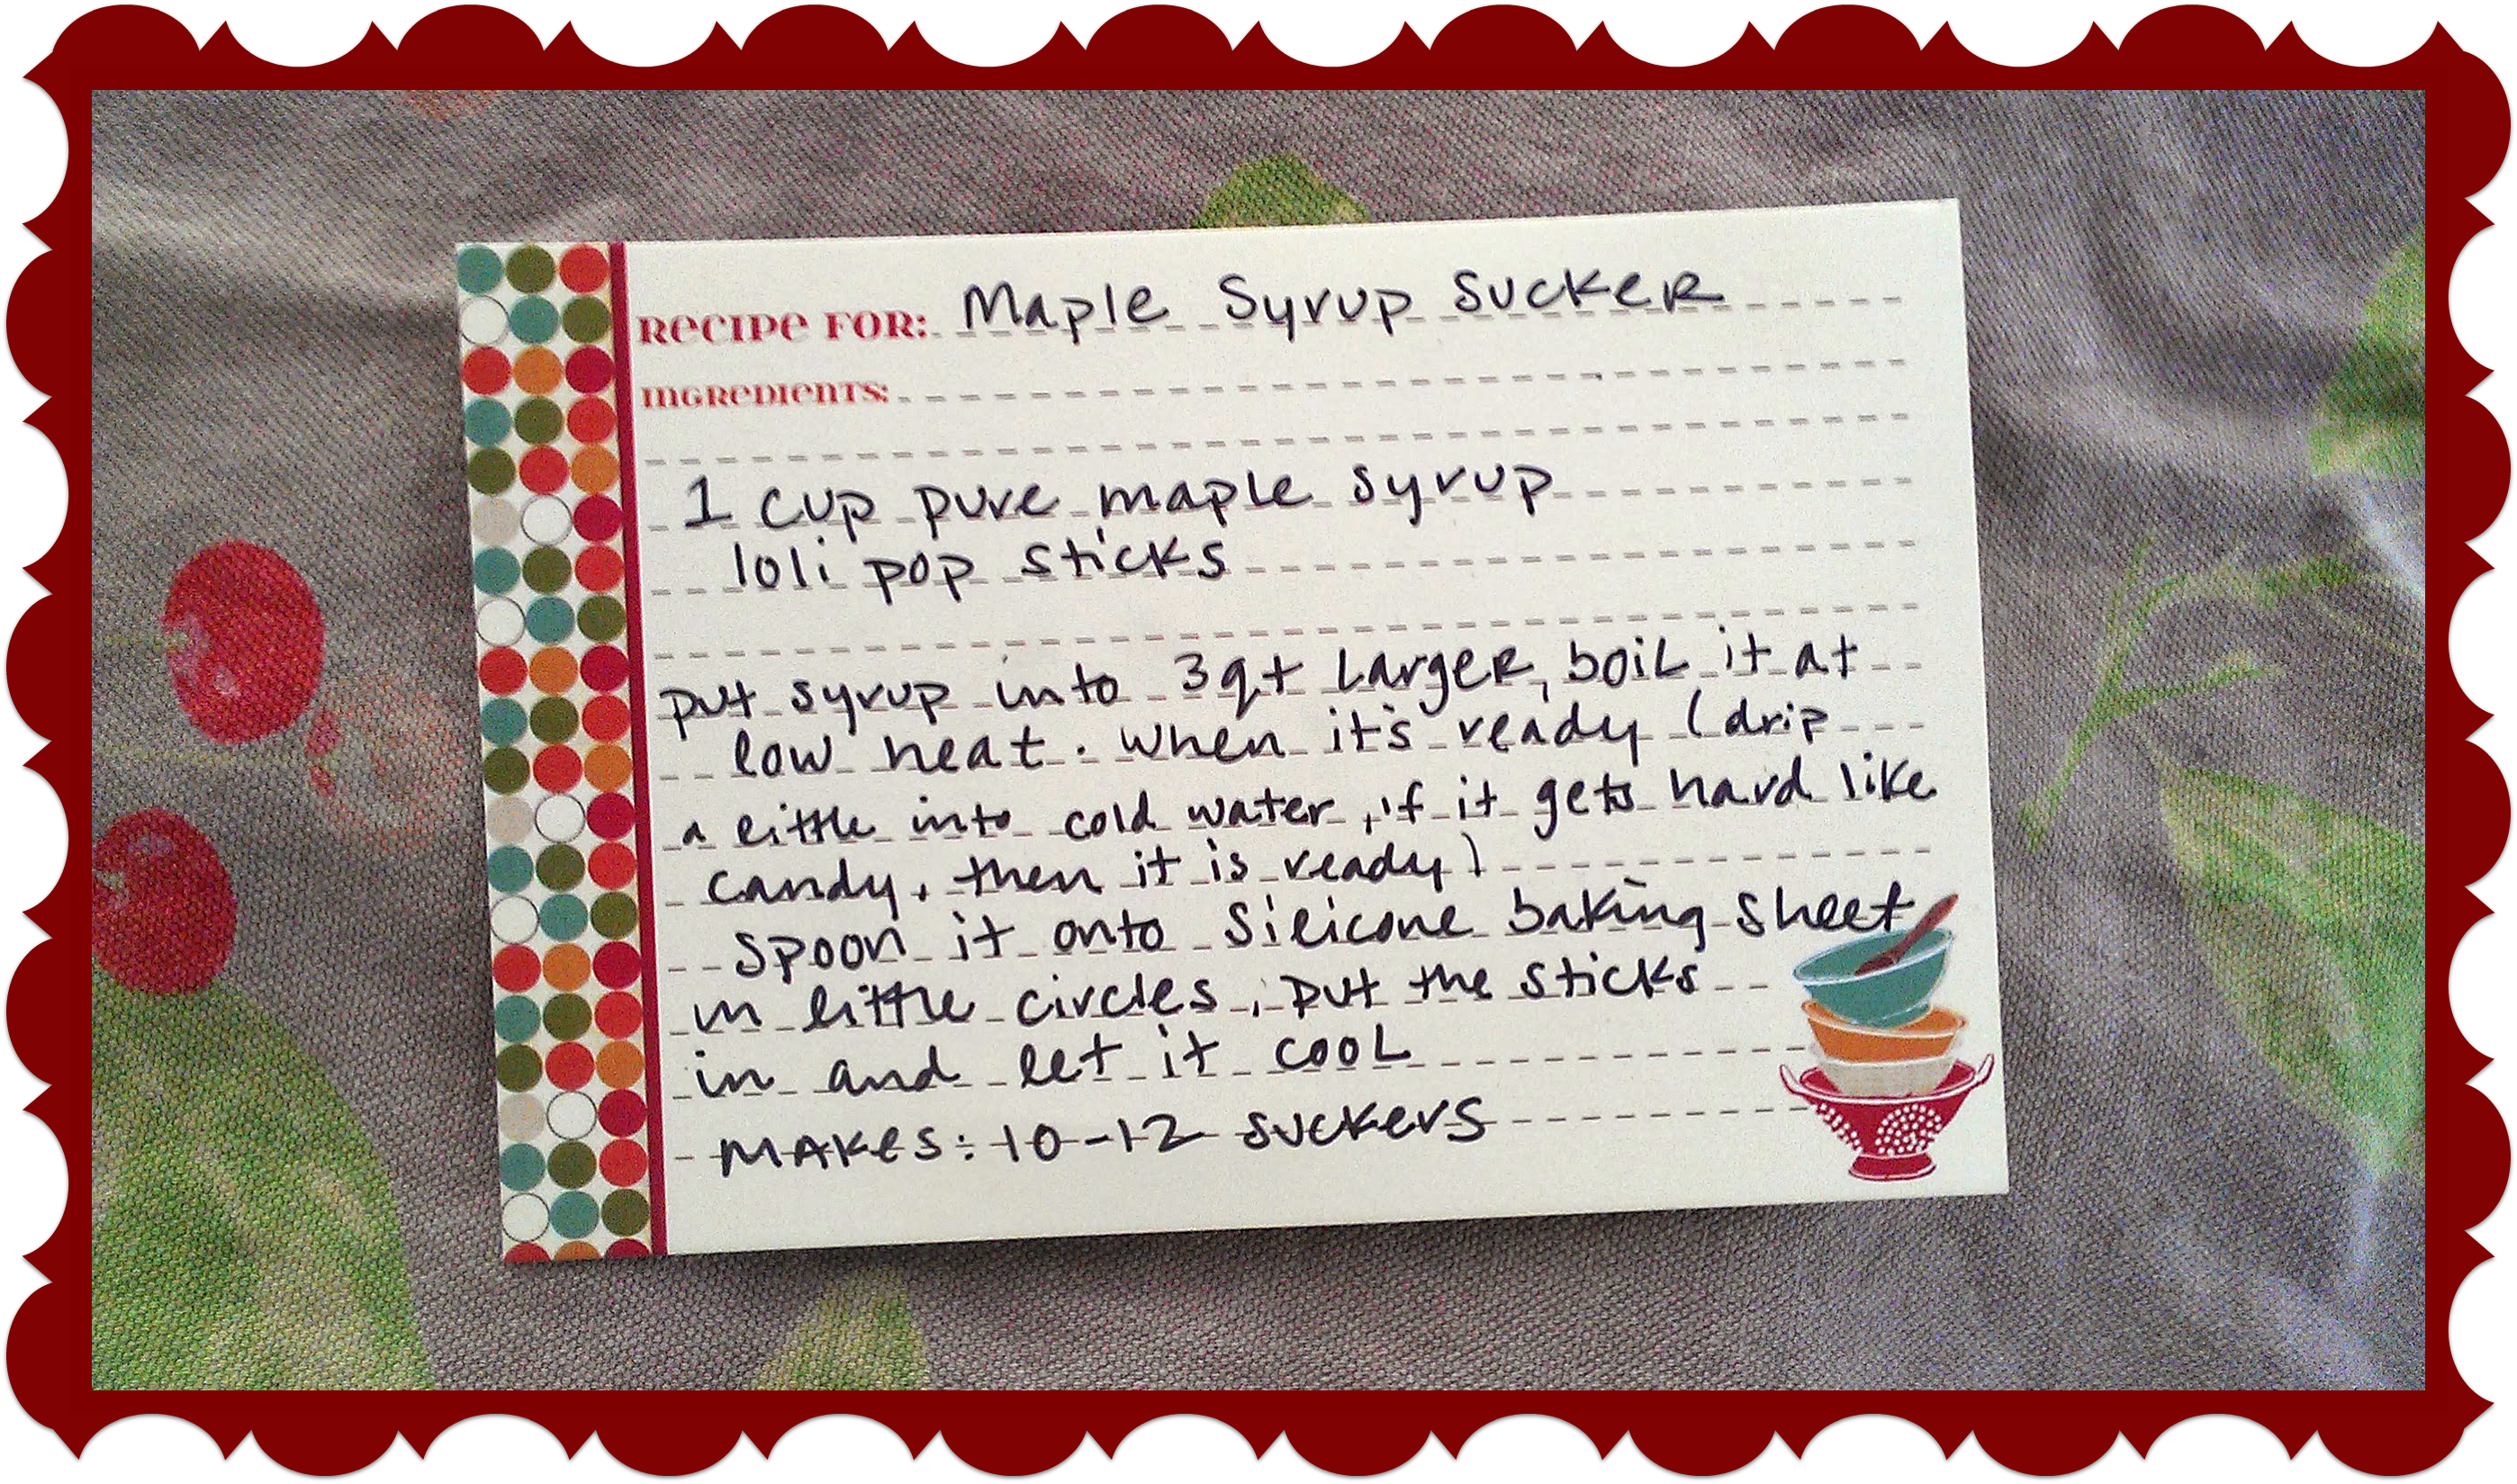 RECIPE FOR: Maple Syrup Sucker
INGREDIENTS:
1 cup pure maple syrup
loli pop sticks
put syrup into 3qt Larger, boil it at
low heat. when it's ready (drip
a little into cold water, if it gets hard like
candy, then it is ready)
spoon it onto silicone baking sheet
in little circles, put the sticks
in and let it cool
MAKES: 10-12 suckers